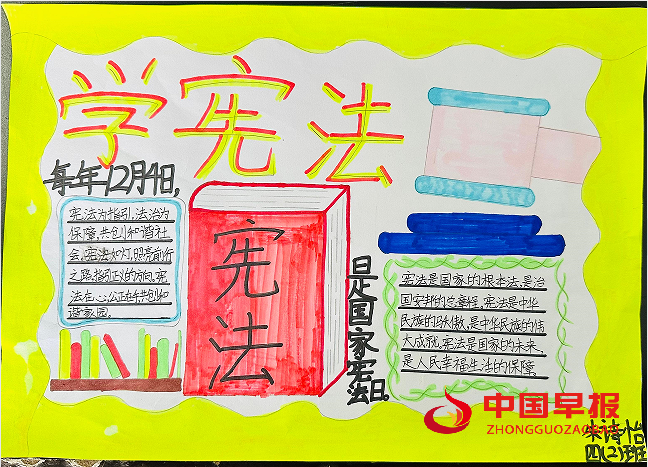 学宪法
每年12月4日,
宪法为指引,法治为
保障,共创和谐社
会,宪法如灯,照亮前行
之路,指引正义的方向,宪
法在心,公正在手,共创和
谐家园。
宪法
是国家宪法日。
宪法是国家的根本法,是治
国安邦的总章程,宪法是中华
民族的骄傲,是中华民族的伟
大成就,宪法是国家的未来,
是人民幸福生活的保障。
中国早报
ZHONGGUOZAOBAO
朱诗怡
四(2)班